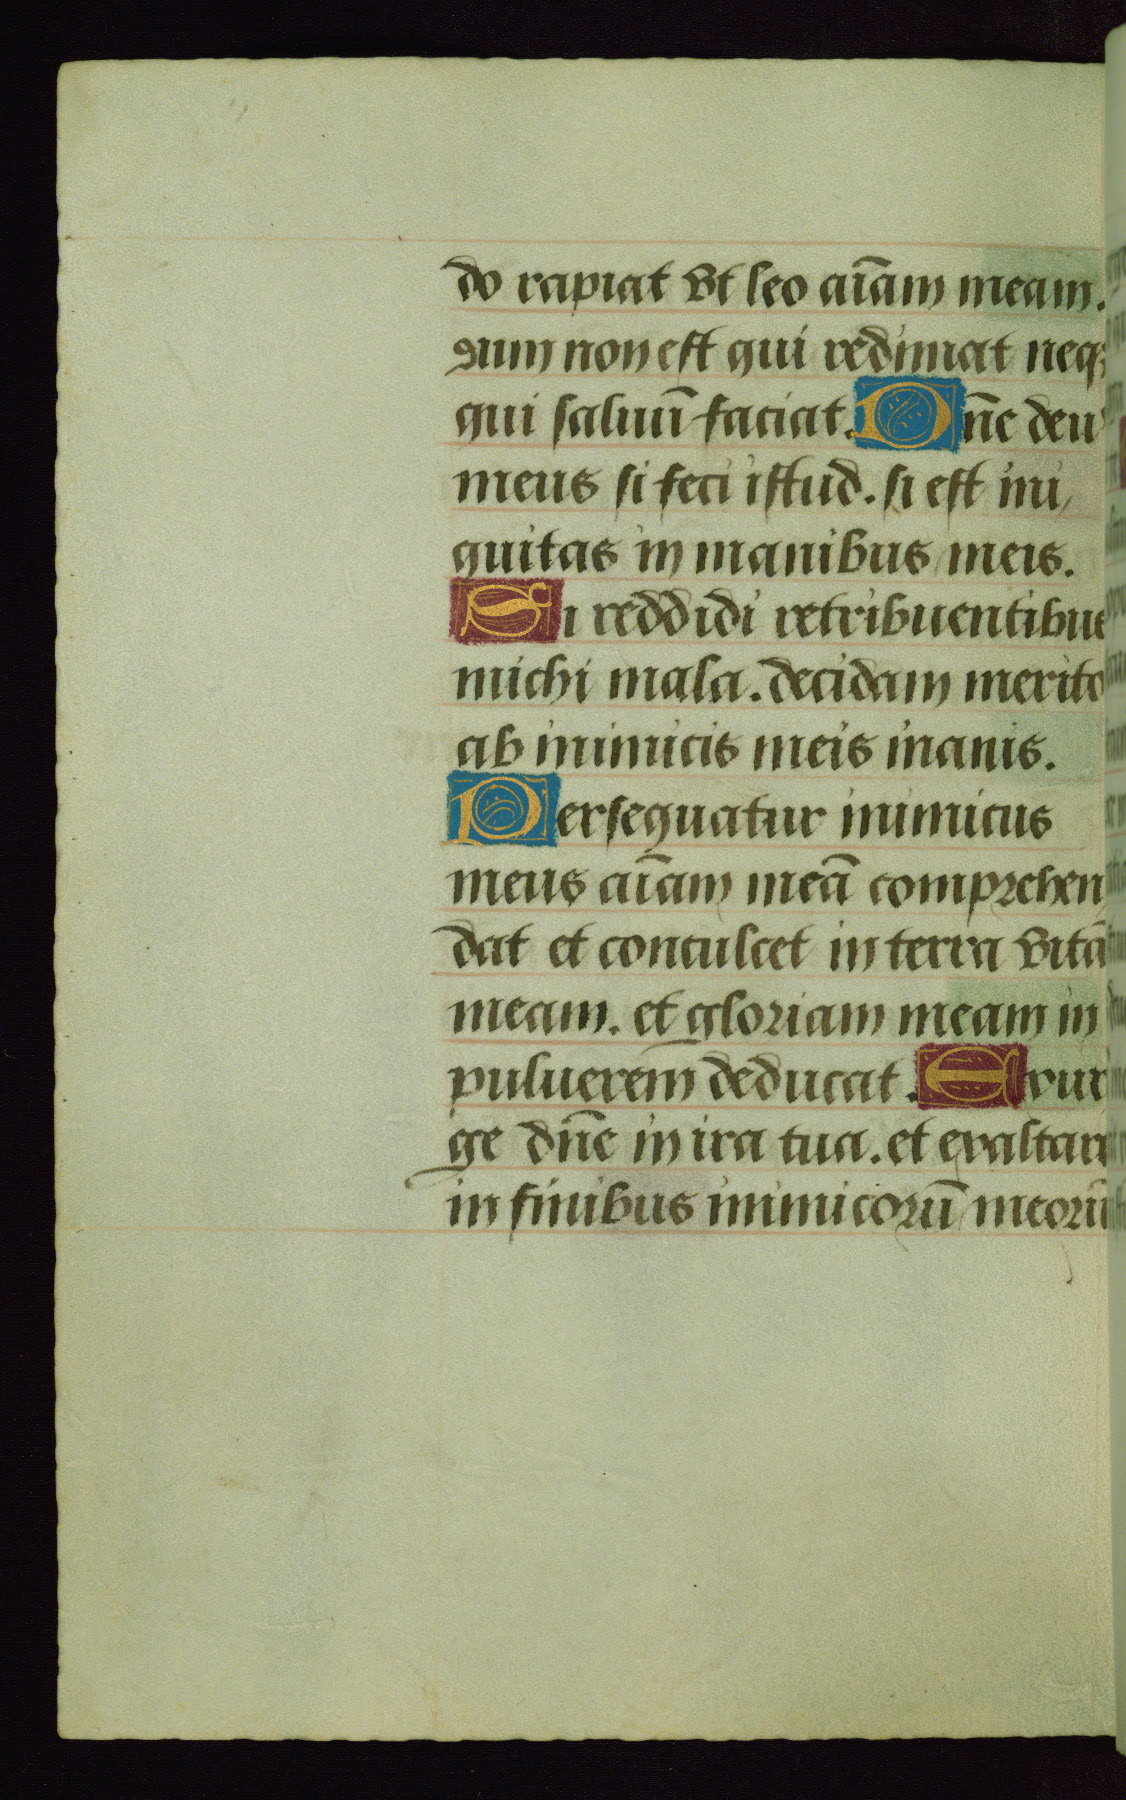 do rapiat vt leo aīam meam.
dum non est qui redimat neqꝫ
qui saluū faciat. Dn̄e deus
meus si feci istud. si est ini
quitas in manibus meis.
Si reddidi retribuentibus
michi mala. decidam merito
ab inimicis meis inanis.
Persequatur inimicus
meus aīam meā comprehen
dat et conculcet in terra vitā
meam. et gloriam meam in
puluerem deducat. Exur
ge dn̄e in ira tua. et exaltare
in finibus inimicorū meorū